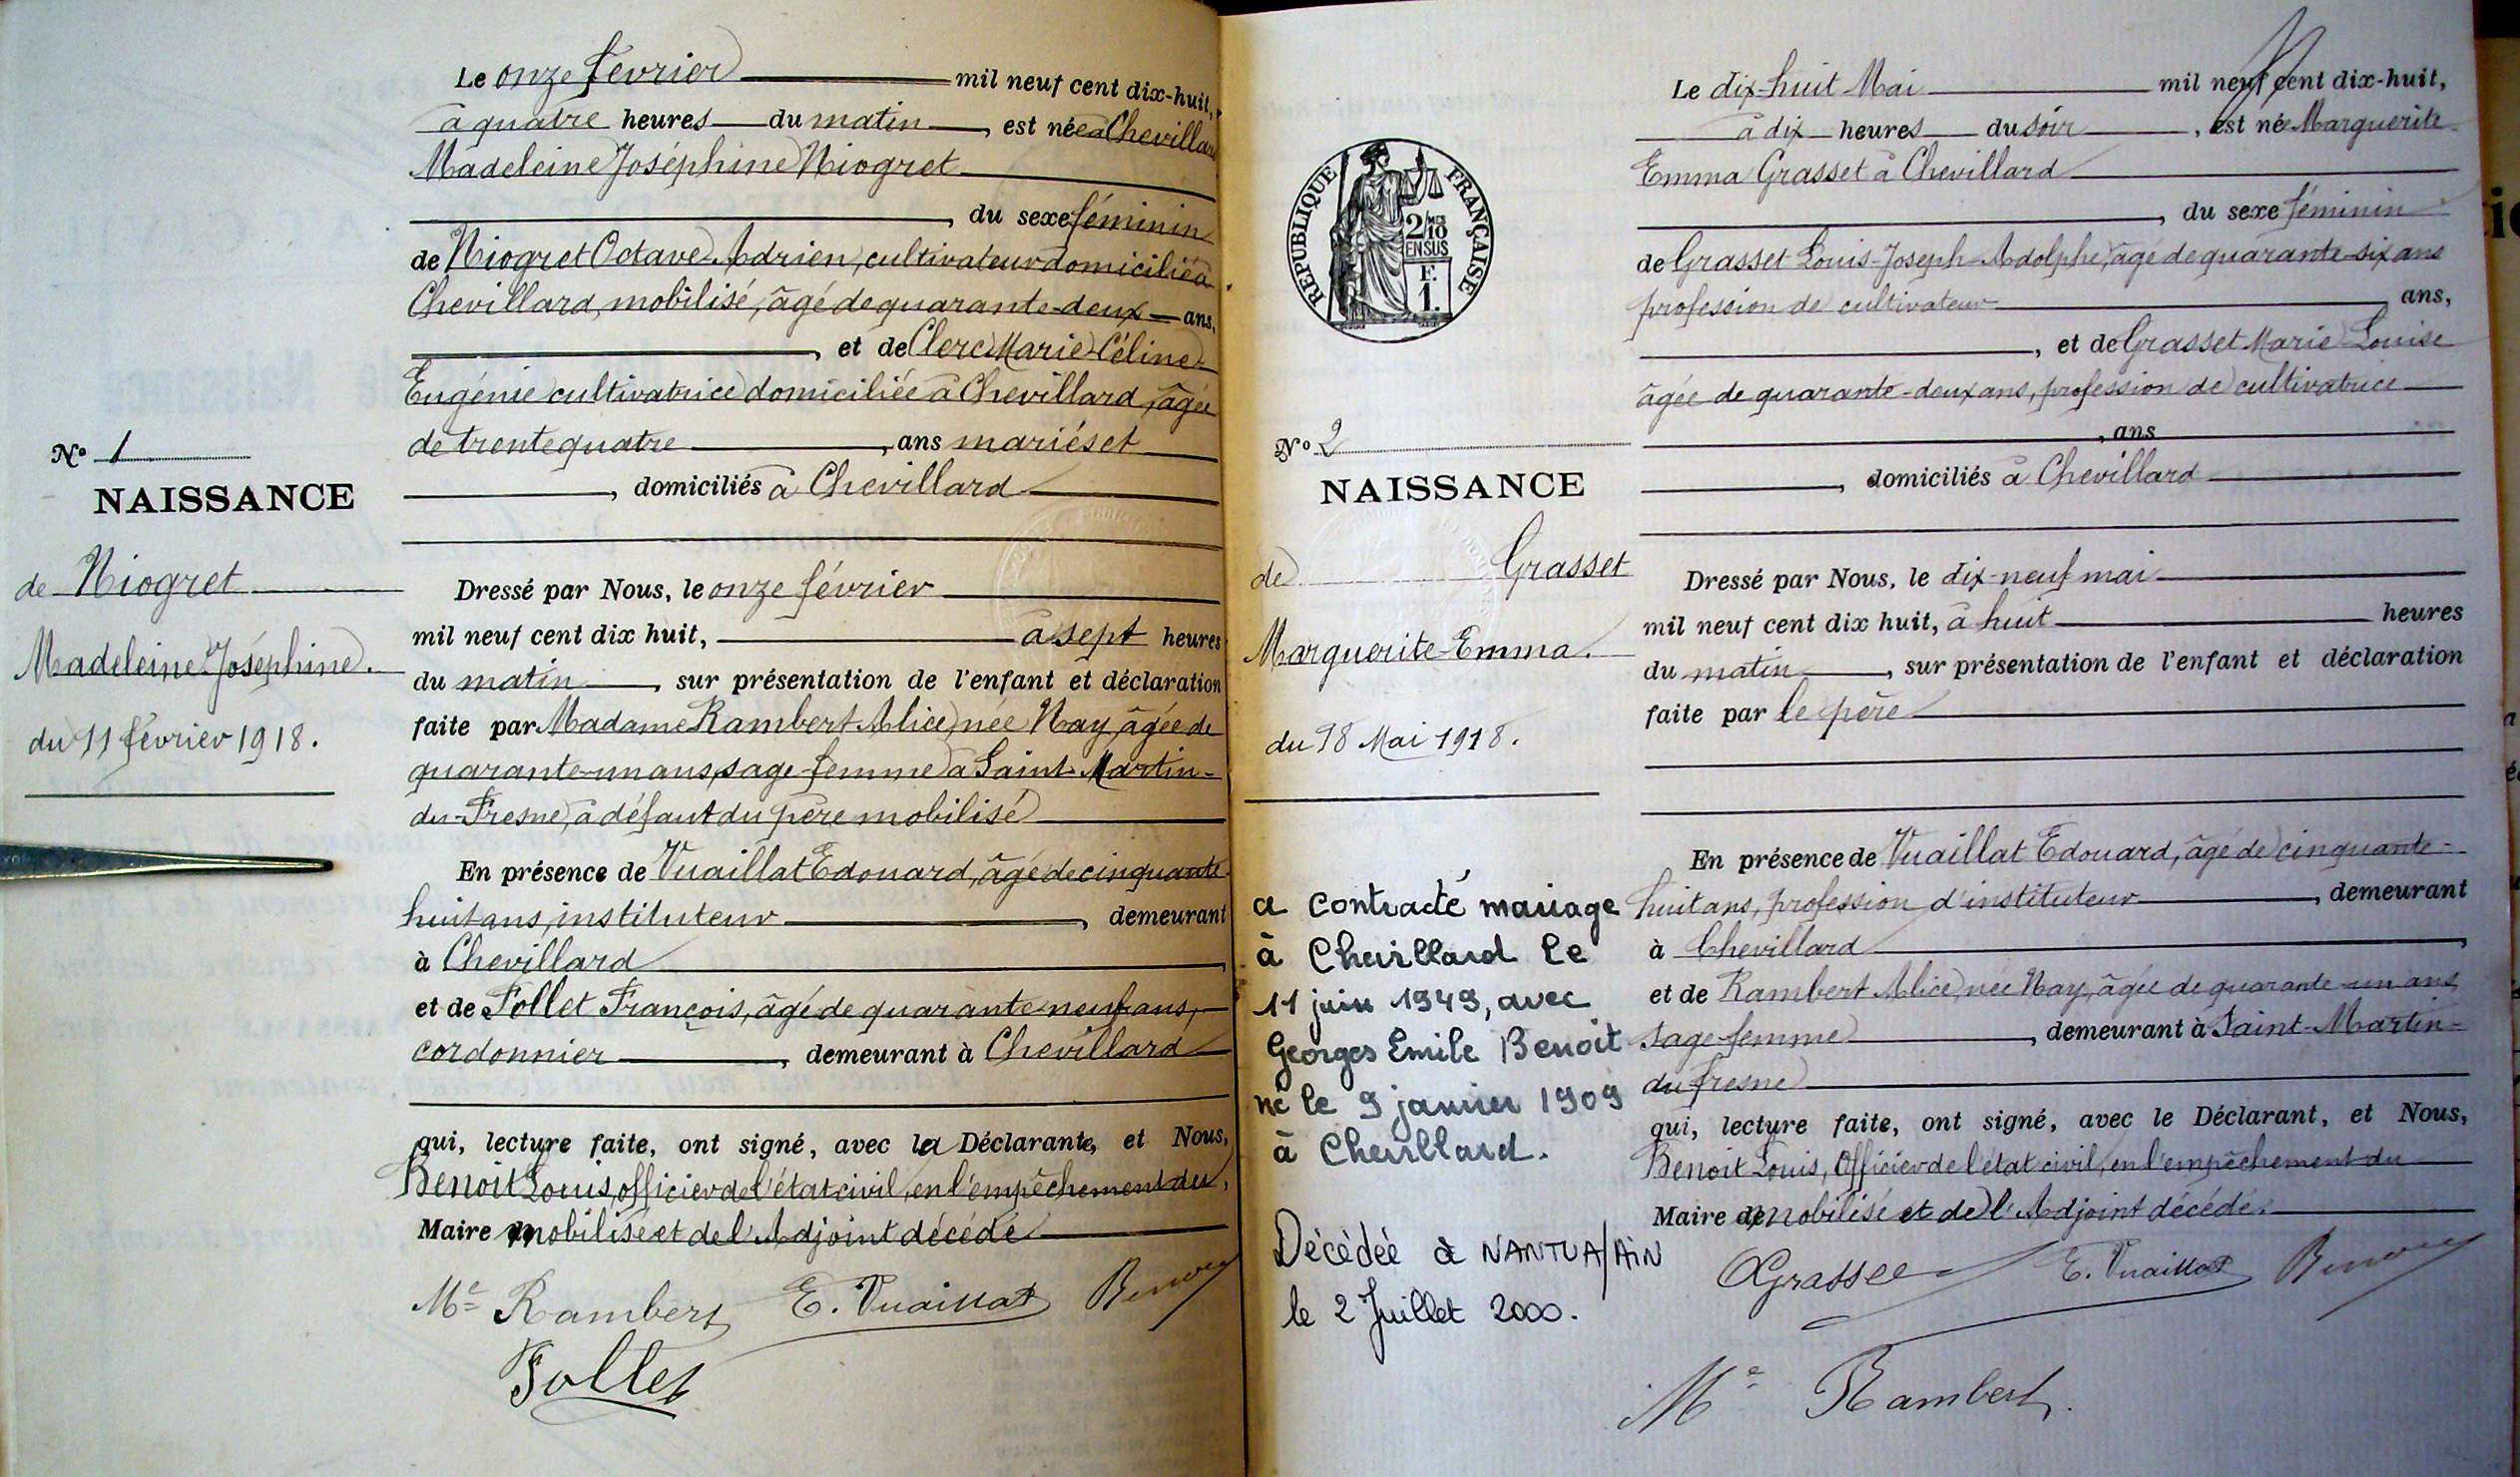 Le onze février mil neuf cent dix-huit,
à quatre heures du matin, est née à Chevillard
Madeleine Joséphine Niogret
, du sexe féminin
de Niogret Octave Adrien, cultivateur domicilié à
Chevillard, mobilisé, âgé de quarante-deux ans,
, et de Clerc Marie Céline
Eugénie cultivatrice domiciliée à Chevillard, âgée
de trente quatre, ans mariés et
, domiciliés à Chevillard
N° 1
NAISSANCE
de Niogret
Madeleine Joséphine.
du 11 février 1918.
Dressé par Nous, le onze février
mil neuf cent dix huit, à sept heures
du matin, sur présentation de l'enfant et déclaration
faite par Madame Rambert Alice, née Nay, âgée de
quarante-un ans, sage-femme à Saint-Martin-
du-Fresne, à défaut du père mobilisé
En présence de Vuaillat Edouard, âgé de cinquante-
huit ans, instituteur, demeurant
à Chevillard
et de Follet François, âgé de quarante-neuf ans,
cordonnier, demeurant à Chevillard
qui, lecture faite, ont signé, avec la Déclarante, et Nous,
Benoit Louis, officier de l'état civil, en l'empêchement du
Maire mobilisé et de l'Adjoint décédé
Me Rambert E. Vuaillat Benoit
Follet
Le dix-huit Mai mil neuf cent dix-huit,
à dix heures du soir, est né Marguerite
Emma Grasset à Chevillard
, du sexe féminin
de Grasset Louis-Joseph-Adolphe, âgé de quarante-six ans
profession de cultivateur ans,
, et de Grasset Marie Louise
âgée de quarante-deux ans, profession de cultivatrice
, ans
, domiciliés à Chevillard
RÉPUBLIQUE FRANÇAISE
2/10
EN SUS
F.
1.
N° 2
NAISSANCE
de Grasset
Marguerite Emma.
du 18 Mai 1918.
a contracté mariage
à Chevillard le
11 juin 1949, avec
Georges Emile Benoit
né le 9 janvier 1909
à Chevillard.
Décédée à NANTUA/AIN
le 2 Juillet 2000.
Dressé par Nous, le dix-neuf mai
mil neuf cent dix huit, à huit heures
du matin, sur présentation de l'enfant et déclaration
faite par le père
En présence de Vuaillat Edouard, âgé de cinquante-
huit ans, profession d'instituteur, demeurant
à Chevillard
et de Rambert Alice, née Nay, âgée de quarante-un ans
sage-femme, demeurant à Saint-Martin-
du fresne
qui, lecture faite, ont signé, avec le Déclarant, et Nous,
Benoit Louis, Officier de l'état civil, en l'empêchement du
Maire mobilisé et de l'Adjoint décédé.
Grasset E. Vuaillat Benoit
Me Rambert.